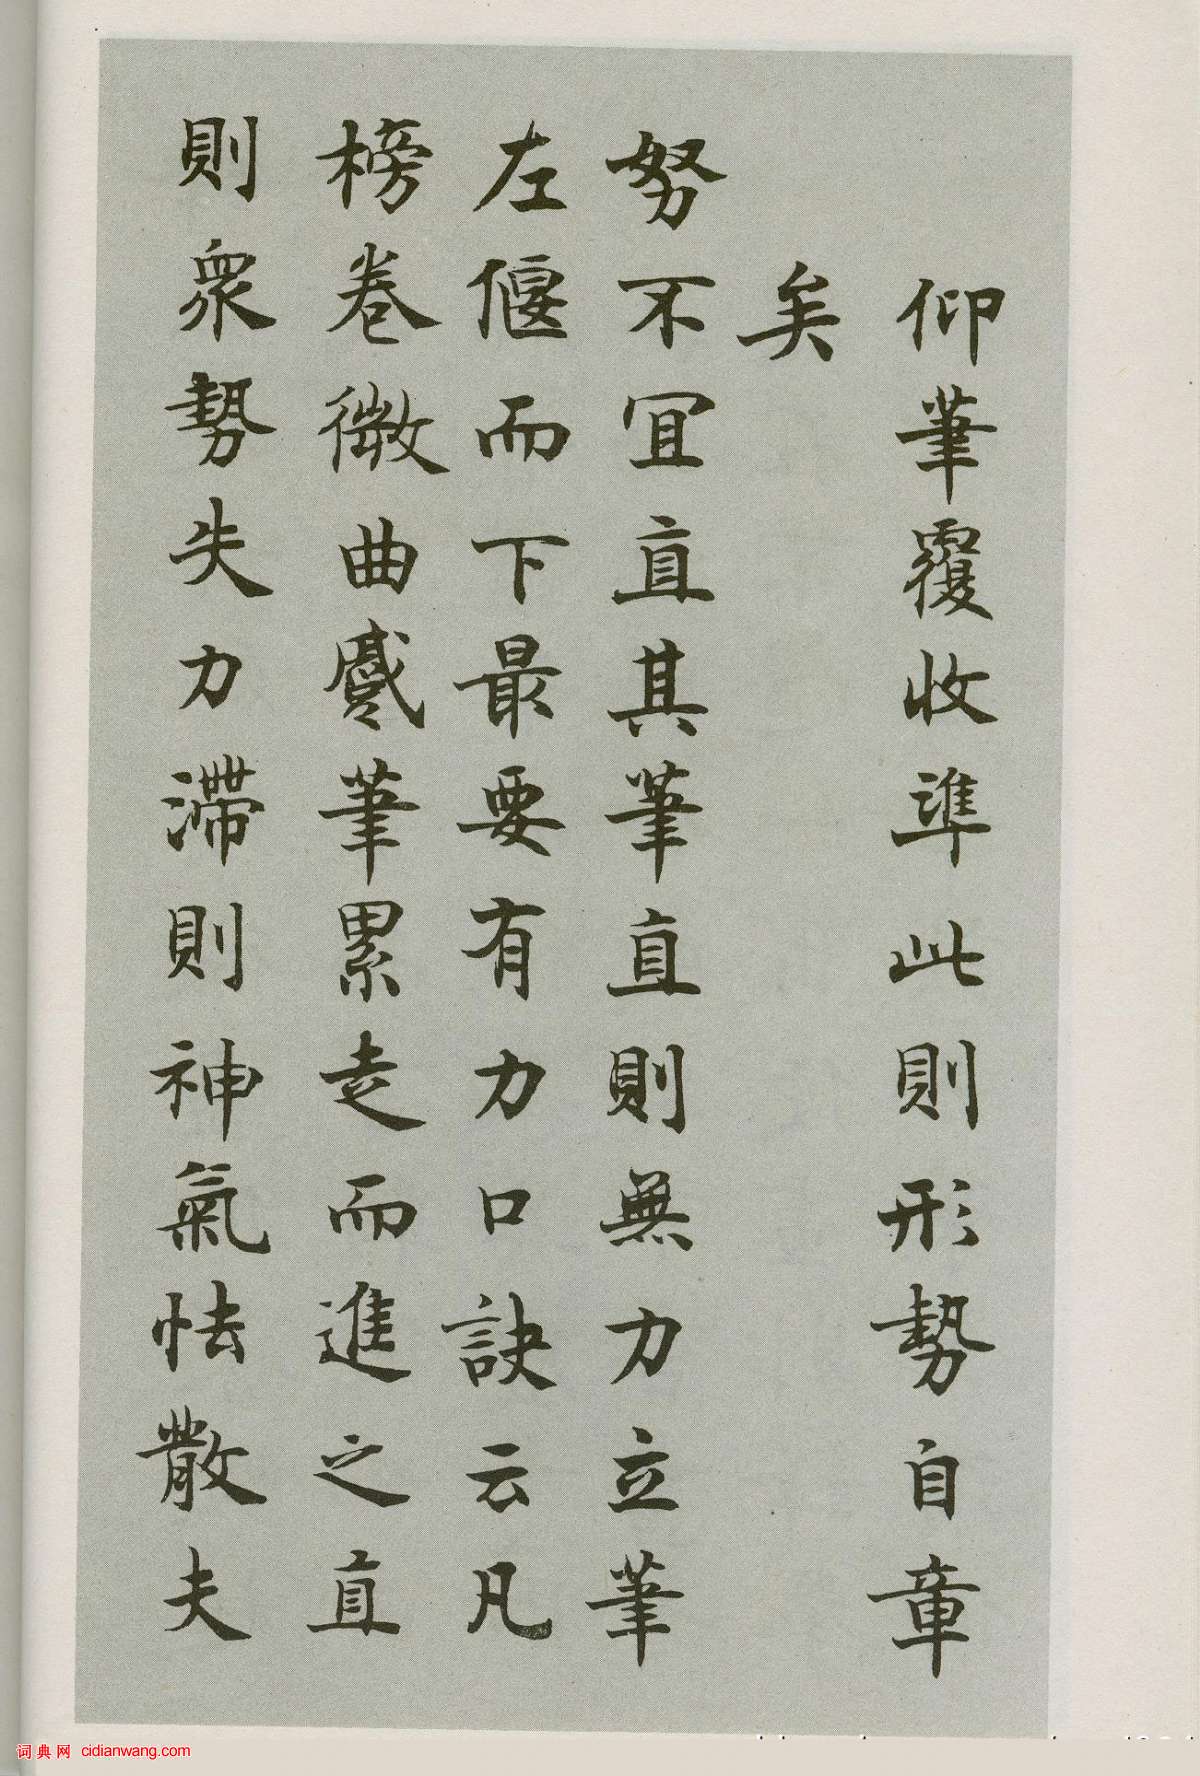 仰筆覆收準此則形勢自章
矣
努不宜直其筆直則無力立筆
左偃而下最要有力口訣云凡
榜卷微曲蹙筆累走而進之直
則衆勢失力滯則神氣怯散夫
词典网 cidianwang.com